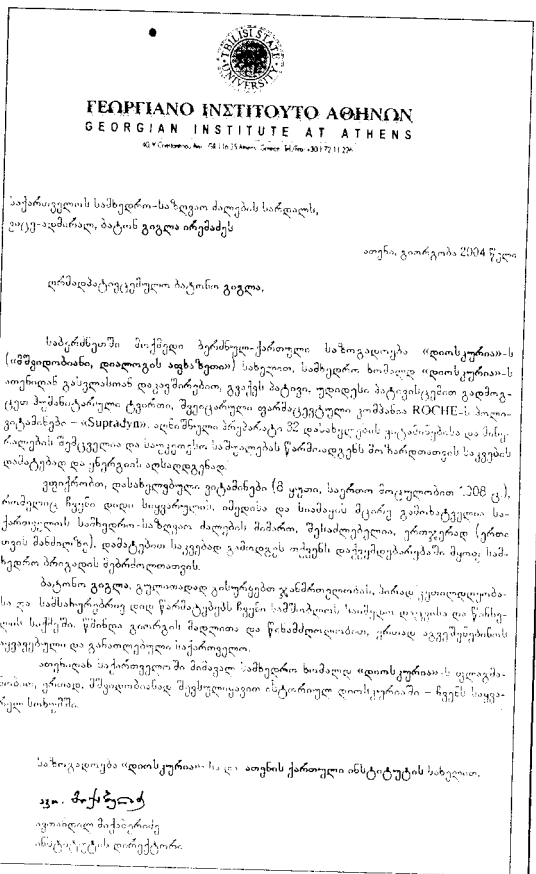 TBILISI STATE UNIVERSITY
ΓΕΩΡΓΙΑΝΟ ΙΝΣΤΙΤΟΥΤΟ ΑΘΗΝΩΝ
GEORGIAN INSTITUTE AT ATHENS
საქართველოს სამხედრო-საზღვაო ძალების სარდალს,
ვიცე-ადმირალ, ბატონ გიგლა ირემაძეს
ათენი, გიორგობა 2004 წელი
ღრმადპატივცემულო ბატონო გიგლა,
საბერძნეთში მოქმედი ბერძნულ-ქართული საზოგადოება «დიოსკურია»-ს
(«მშვიდობიანი, დიალოგის აფხაზეთი») სახელით, სამხედრო ხომალდ «დიოსკურია»-ს
ათენიდან გასვლასთან დაკავშირებით, გვაქვს პატივი, უდიდესი პატივისცემით გადმოგ-
ცეთ ჰუმანიტარული ტვირთი, შვეიცარული ფარმაცევტული კომპანია ROCHE-ს პოლი-
ვიტამინები – «Supradyn». აღნიშნული პრეპარატი 32 დასახელების ვიტამინებისა და მინე-
რალების შემცველია და საუკეთესო საშუალებას წარმოადგენს მოზარდთათვის საკვების
დამატებად და ენერგიის აღსადგენად.
ვფიქრობთ, დასახელებული ვიტამინები (8 ყუთი, საერთო მოცულობით 1.008 ც.),
რომელიც ჩვენი დიდი სიყვარულის, იმედისა და სიამაყის მცირე გამოხატველია სა-
ქართველოს სამხედრო-საზღვაო ძალების მიმართ, შესაძლებელია, ერთჯერად (ერთი
თვის მანძილზე), დამატებით საკვებად გამოდგეს თქვენს დაქვემდებარებაში მყოფ სამ-
ხედრო ბრიგადის მებრძოლთათვის.
ბატონო გიგლა, გულითადად გისურვებთ ჯანმრთელობას, პირად კეთილდღეობა-
სა და სამსახურებრივ დიდ წარმატებებს ჩვენი სამშობლოს საიმედო დაცვისა და წინსვ-
ლის საქმეში. წმინდა გიორგის მადლითა და წინამძღოლობით, ერთად აგვეშენებინოს
აყვავებული და განათლებული საქართველო.
ათენიდან საქართველოში მიმავალ სამხედრო ხომალდ «დიოსკურია»-ს ფლაგმა-
ნობით, ერთად, მშვიდობიანად შევსულიყავით ისტორიულ დიოსკურიაში – ჩვენს საყვა-
რელ სოხუმში.
საზოგადოება «დიოსკურია»-სა და ათენის ქართული ინსტიტუტის სახელით,
ავთანდილ მიქაბერიძე
ინსტიტუტის დირექტორი